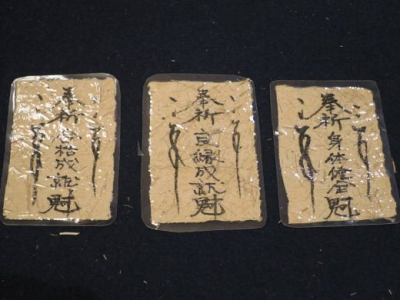 奉祈合格成就魁
奉祈良縁成就魁
奉祈身体健全魁